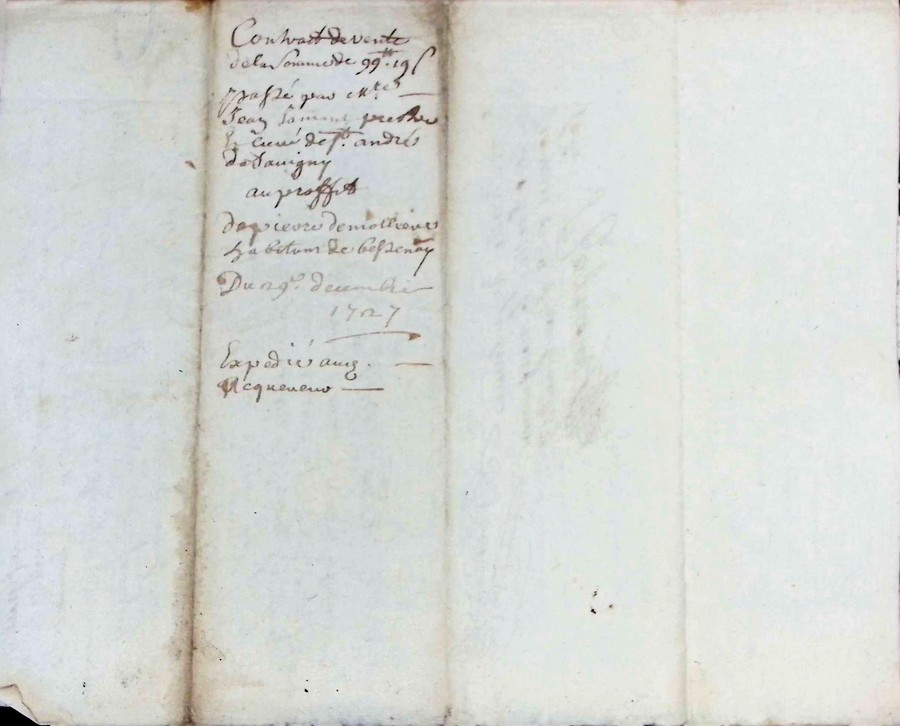 Contract de vente
de la Somme de 99tt. 19 s
passé par Mre
Jean prestre
& Curé de St. andré
de Savigny
au proffit
de pierre demolliere
habitant de bessenay
Du 29e. decembre
1727
Expedié aud.
Acquereur